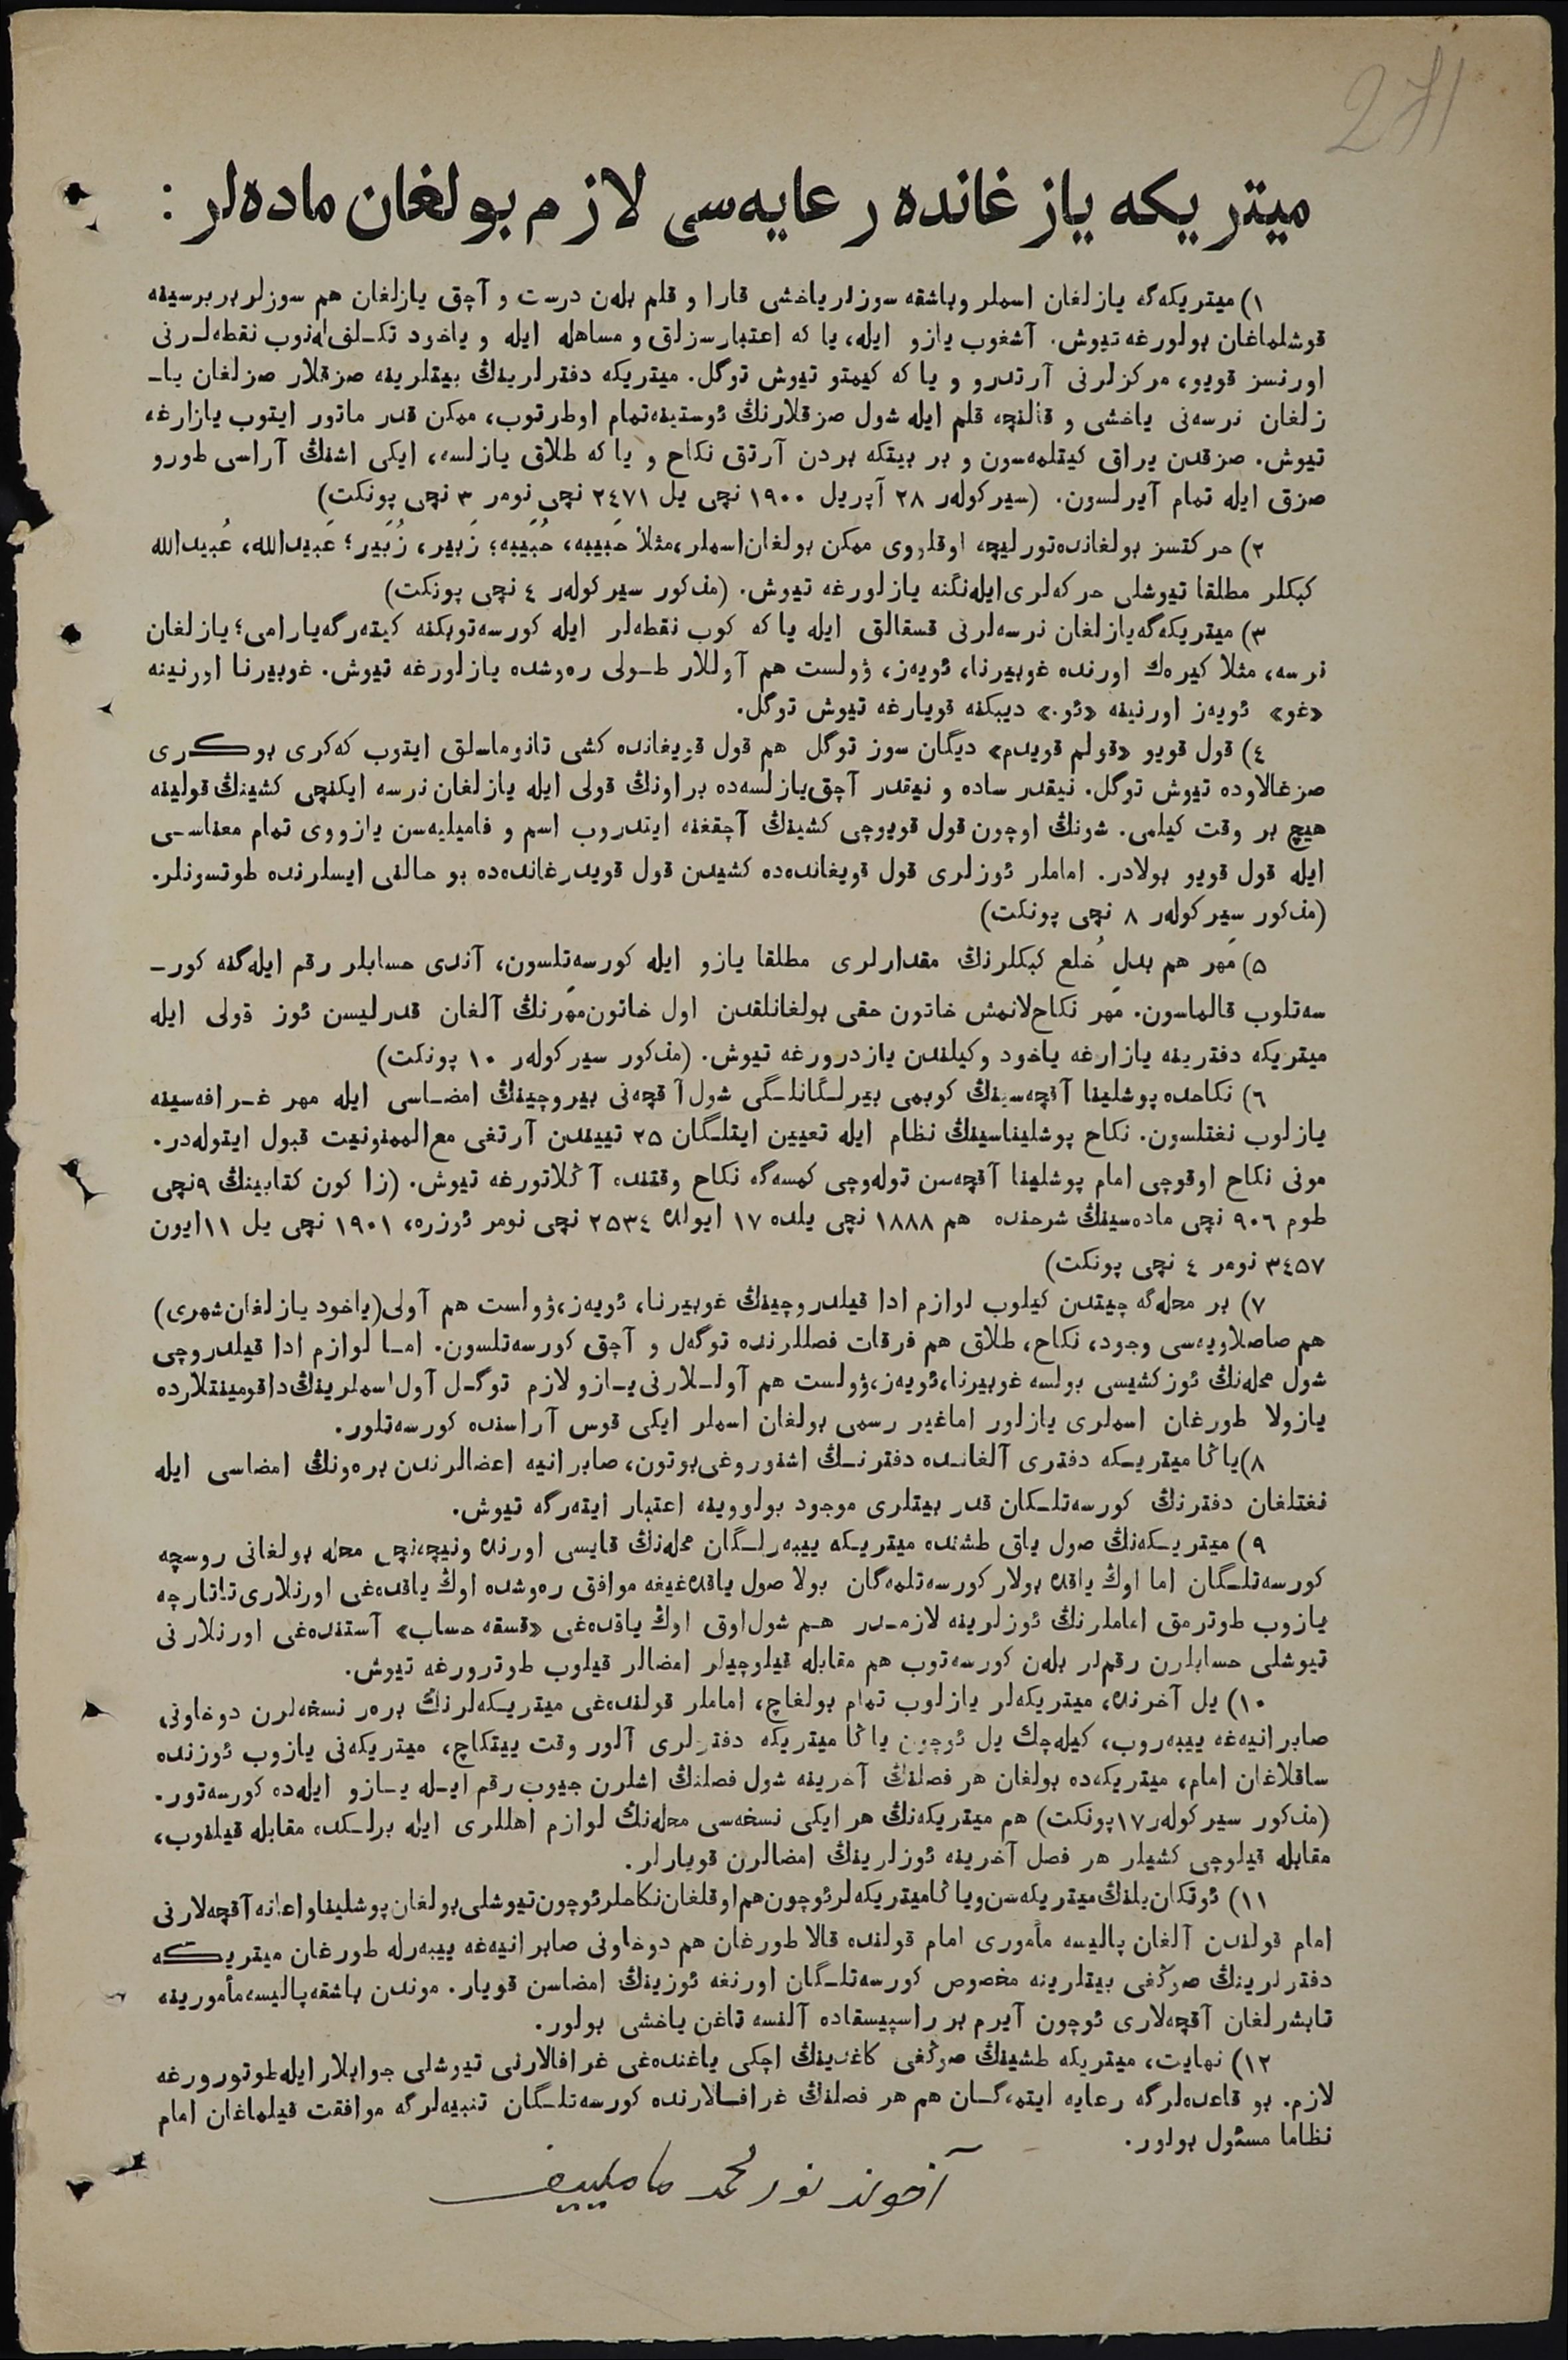 271
ميتريكه يازغانده رعايه‌سى لازم بولغان ماده‌لر :
١) ميتريكه‌گه يازلغان اسملر وباشقه سوزلر ياخشى قارا و قلم بله‌ن درست و آچق يازلغان هم سوزلر بربرسينه
قوشلماغان بولورغه تيوش. آشغوب يازو ايله، يا كه اعتبارسزلق و مساهله ايله و ياخود تكـلف له‌نوب نقطه‌لـرنى
اورنسز قويو، مركزلرنى آرتدرو و يا كه كيمتو تيوش توگل. ميتريكه دفترلرينڭ بيتلرينه صزقلار صزلغان يا‍ـ
زلغان نرسه‌نى ياخشى و قالنچه قلم ايله شول صزقلارنڭ ئوستينه تمام اوطرتوب، ممكن قدر ماتور ايتوب يازارغه
تيوش. صزقدن يراق كيتلمه‌سون و بر بيتكه بردن آرتق نكاح و يا كه طلاق يازلسه، ايكى اشنڭ آراسى طورو
صزق ايله تمام آيرلسون. (سيركوله‌ر ٢٨ آپريل ١٩٠٠ نچى يل ٢٤٧١ نچى نومر ٣ نچى پونكت)
٢) حركتسز بولغانده تورليچه اوقلووى ممكن بولغان اسملر، مثلا حَبيبه، حُبَيبه؛ زَبير، زُبَير؛ عَبيدالله، عُبيدالله
كبكلر مطلقا تيوشلى حركه‌لرى ايله‌نگنه يازلورغه تيوش. (مذكور سيركوله‌ر ٤ نچى پونكت)
٣) ميتريكه‌گه يازلغان نرسه‌لرنى قسقالق ايله يا كه كوب نقطه‌لر ايله كورسه‌توبكنه كيته‌رگه يارامى؛ يازلغان
نرسه، مثلا كيره‌ك اورنده غوبيرنا، ئويه‌ز، ۋولست هم آوللار طـولى ره‌وشده يازلورغه تيوش. غوبيرنا اورنينه
«غو» ئويه‌ز اورنينه «ئو.» ديبكنه قويارغه تيوش توگل.
٤) قول قويو «قولم قويدم» ديگان سوز توگل هم قول قويغانده كشى تانوماسلق ايتوب كه‌كرى بوكـرى
صزغالاوده تيوش توگل. نيقدر ساده و نيقدر آچق يازلسه‌ده براونڭ قولى ايله يازلغان نرسه ايكنچى كشينڭ قولينه
هيچ بر وقت كيلمى. شونڭ اوچون قول قويوچى كشينڭ آچقغنه ايتدروب اسم و فاميليه‌سن يازووى تمام معناسـى
ايله قول قويو بولادر. اماملر ئوزلرى قول قويغانده‌ده كشيدن قول قويدرغانده‌ده بو حالنى ايسلرنده طوتسونلر.
(مذكور سيركوله‌ر ٨ نچى پونكت)
٥) مَهر هم بدلِ خُلع كبكلرنڭ مقدارلرى مطلقا يازو ايله كورسه‌تلسون، آندى حسابلر رقم ايله گنه كور‍ـ
سه‌تلوب قالماسون. مَهر نكاح‌لانمش خاتون حقى بولغانلقدن اول خاتون مَهرنڭ آلغان قدرليسن ئوز قولى ايله
ميتريكه دفترينه يازارغه ياخود وكيلندن يازدرورغه تيوش. (مذكور سيركوله‌ر ١٠ پونكت)
٦) نكاحده پوشلينا آقچه‌سينڭ كوبمى بيرلـگانلـگى شول آقچه‌نى بيروچينڭ امضـاسى ايله مهر غـرافه‌سينه
يازلوب نغتلسون. نكاح پوشليناسينڭ نظام ايله تعيين ايتلـگان ٢٥ تييندن آرتغى مع الممنونيت قبول ايتوله‌در.
مونى نكاح اوقوچى امام پوشلينا آقچه‌سن توله‌وچى كمسه‌گه نكاح وقتنده آڭلاتورغه تيوش. (زاكون كتابينڭ ٩نچى
طوم ٩٠٦ نچى ماده‌سينڭ شرحنده هم ١٨٨٨ نچى يلده ١٧ ايولده ٢٥٣٤ نچى نومر ئوزره، ١٩٠١ نچى يل ١١ ايون
٣٤٥٧ نومر ٤ نچى پونكت)
٧) بر محله‌گه چيتدن كيلوب لوازم ادا قيلدروچينڭ غوبيرنا، ئويه‌ز، ۋولست هم آولى (ياخود يازلغان شهرى)
هم صاصلاويه‌سى وجود، نكاح، طلاق هم فرقات فصللرنده توگه‌ل و آچق كورسه‌تلسون. امـا لوازم ادا قيلدروچى
شول محله‌نڭ ئوز كشيسى بولسه غوبيرنا، ئويه‌ز، ۋولست هم آولـلارنى يـازو لازم توگـل آول اسملرينڭ داقومينتلارده
يازولا طورغان اسملرى يازلور اماغير رسمى بولغان اسملر ايكى قوس آراسنده كورسه‌تلور.
٨) ياڭا ميتريـكه دفترى آلغانـده دفترنـڭ اشنوروغى بوتون، صابرانيه اعضالرندن بره‌ونڭ امضاسى ايله
نغتلغان دفترنڭ كورسه‌تلـكان قدر بيتلرى موجود بولووينه اعتبار ايته‌رگه تيوش.
٩) ميتريـكه‌نڭ صول ياق طشنده ميتريـكه ييبه‌رلـگان محله‌نڭ قايسى اورنده ونيچه‌نچى محله بولغانى روسچه
كورسه‌تلـگان اما اوڭ ياقده بولار كورسه‌تلمه‌گان بولا صول ياقده‌غيغه موافق ره‌وشده اوڭ ياقده‌غى اورنلارى تاتارچه
يازوب طوترمق اماملرنڭ ئوزلرينه لازمـدر هـم شول اوق اوڭ ياقده‌غى «قسقه حساب» آستنده‌غى اورنلارنى
تيوشلى حسابلرن رقم‌لر بله‌ن كورسه‌توب هم مقابله قيلوچيلر امضالر قيلوب طوترورغه تيوش.
١٠) يل آخرنده، ميتريكه‌لر يازلوب تمام بولغاچ، اماملر قولنده‌غى ميتريـكه‌لرنڭ بره‌ر نسخه‌لرن دوخاونى
صابرانيه‌غه ييبه‌روب، كيله‌چك يل ئوچون ياڭا ميتريكه دفترلرى آلور وقت ييتكاچ، ميتريكه‌نى يازوب ئوزنده
ساقلاغان امام، ميتريكه‌ده بولغان هر فصلنڭ آخرينه شول فصلنڭ اشلرن جيوب رقم ايـله يـازو ايله‌ده كورسه‌تور.
(مذكور سيركوله‌ر ١٧ پونكت) هم ميتريكه‌نڭ هر ايكى نسخه‌سى محله‌نڭ لوازم اهللرى ايله برلـكده مقابله قيلنوب،
مقابله قيلوچى كشيلر هر فصل آخرينه ئوزلرينڭ امضالرن قويارلر.
١١) ئوتكان يلنڭ ميتريكه‌سن و ياڭا ميتريكه‌لر ئوچون هم اوقلغان نكاحلر ئوچون تيوشلى بولغان پوشلينا و اعانه آقچه‌لارنى
امام قولندن آلغان پاليسه مأمورى امام قولنده قالا طورغان هم دوخاونى صابرانيه‌غه ييبه‌رله طورغان ميتريـكه
دفترلرينڭ صوڭغى بيتلرينه مخصوص كورسه‌تلـگان اورنغه ئوزينڭ امضاسن قويار. موندن باشقه پاليسه مأمورينه
تابشرلغان آقچه‌لارى ئوچون آيرم بر راسپيسقاده آلنسه تاغن ياخشى بولور.
١٢) نهايت، ميتريكه طشينڭ صوڭغى كاغدينڭ اچكى ياغنده‌غى غرافالارنى تيوشلى جوابلار ايله طوتورورغه
لازم. بو قاعده‌لرگه رعايه ايتمه‌گـان هم هر فصلنڭ غرافـالارنده كورسه‌تلـگان تنبيه‌لرگه موافقت قيلماغان امام
نظاما مسئول بولور.
آخوند نورمحمد مامليييف